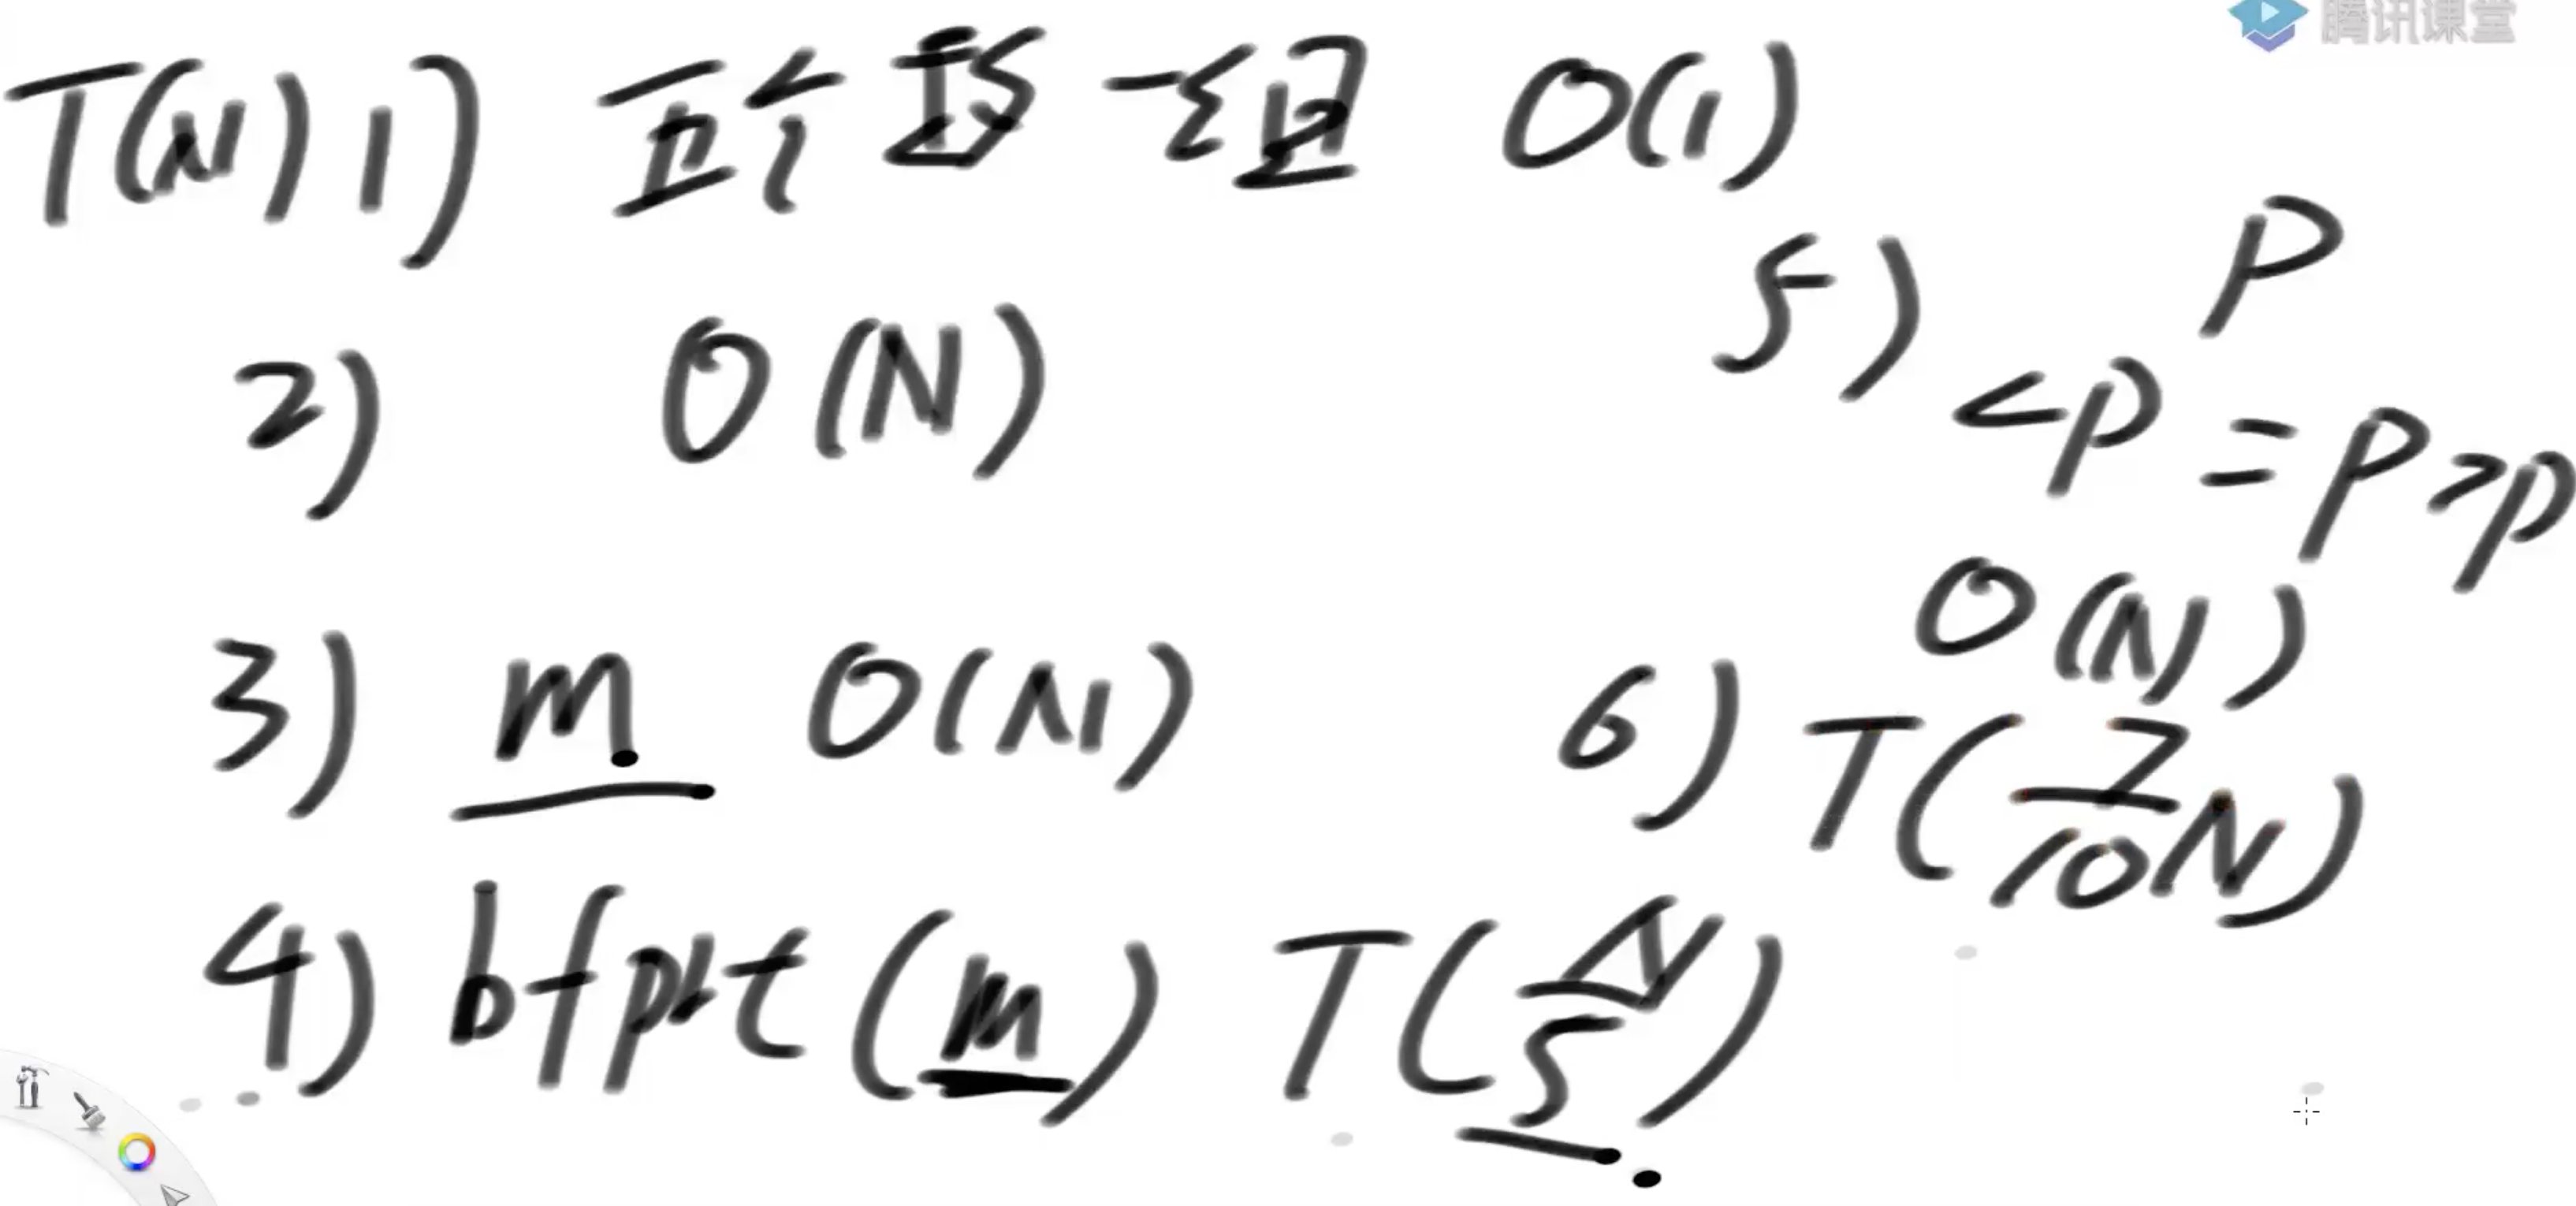 腾讯课堂
T(N) 1) 五个数一组 O(1)
2) O(N)
3) m O(N)
4) bfprt(m) T(N/5)
5) P
<P =P >P
O(N)
6) T(7/10 N)